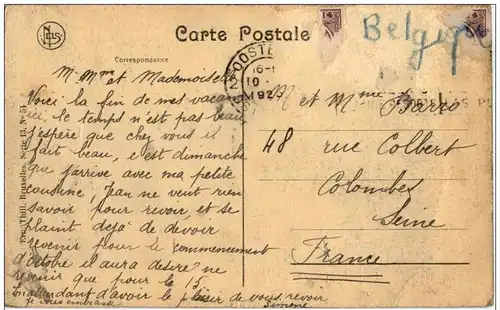 Carte Postale
Belgique
Correspondance
M. Mme et Mademoiselle
Voici la fin de mes vacan
ces, le temps n'est pas beau
j'espère que chez vous il
fait beau, c'est dimanche
que j'arrive avec ma petite
cousine, Jean ne veut rien
savoir pour revoir, et se
plaint déjà de devoir
revenir pour le commencement
d'octobre il aura désiré ne
revenir que pour le 13.
En attendant d'avoir le plaisir de vous revoir
je vous embrasse
Simone
OOSTE
16-1
10
192
M et Mme
48 rue Colbert
Colombes
Seine
France
Ern. Thill, Bruxelles. Série 13. N° 51